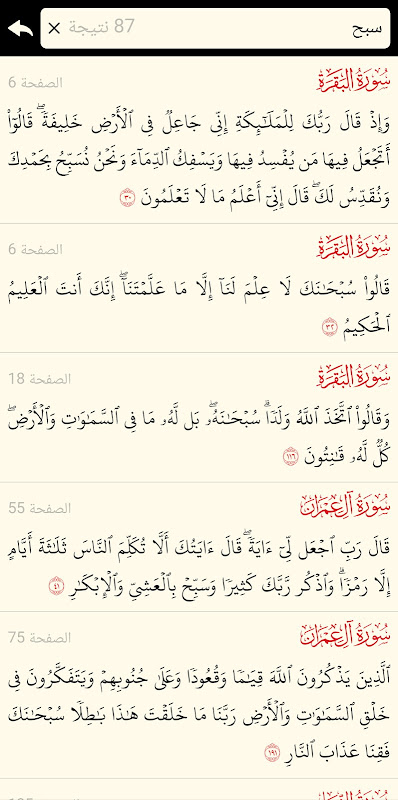 سبح 87 نتيجة ✕
سُورَةُ البَقَرَةِ الصفحة 6
وَإِذْ قَالَ رَبُّكَ لِلْمَلَـٰٓئِكَةِ إِنِّى جَاعِلٌ فِى ٱلْأَرْضِ خَلِيفَةً ۖ قَالُوٓا۟
أَتَجْعَلُ فِيهَا مَن يُفْسِدُ فِيهَا وَيَسْفِكُ ٱلدِّمَآءَ وَنَحْنُ نُسَبِّحُ بِحَمْدِكَ
وَنُقَدِّسُ لَكَ ۖ قَالَ إِنِّىٓ أَعْلَمُ مَا لَا تَعْلَمُونَ ٣٠
سُورَةُ البَقَرَةِ الصفحة 6
قَالُوا۟ سُبْحَـٰنَكَ لَا عِلْمَ لَنَآ إِلَّا مَا عَلَّمْتَنَآ ۖ إِنَّكَ أَنتَ ٱلْعَلِيمُ
ٱلْحَكِيمُ ٣٢
سُورَةُ البَقَرَةِ الصفحة 18
وَقَالُوا۟ ٱتَّخَذَ ٱللَّهُ وَلَدًا ۗ سُبْحَـٰنَهُۥ ۖ بَل لَّهُۥ مَا فِى ٱلسَّمَـٰوَٰتِ وَٱلْأَرْضِ ۖ
كُلٌّ لَّهُۥ قَـٰنِتُونَ ١١٦
سُورَةُ آلِ عِمْرَانَ الصفحة 55
قَالَ رَبِّ ٱجْعَل لِّىٓ ءَايَةً ۖ قَالَ ءَايَتُكَ أَلَّا تُكَلِّمَ ٱلنَّاسَ ثَلَـٰثَةَ أَيَّامٍ
إِلَّا رَمْزًا ۗ وَٱذْكُر رَّبَّكَ كَثِيرًا وَسَبِّحْ بِٱلْعَشِىِّ وَٱلْإِبْكَـٰرِ ٤١
سُورَةُ آلِ عِمْرَانَ الصفحة 75
ٱلَّذِينَ يَذْكُرُونَ ٱللَّهَ قِيَـٰمًا وَقُعُودًا وَعَلَىٰ جُنُوبِهِمْ وَيَتَفَكَّرُونَ فِى
خَلْقِ ٱلسَّمَـٰوَٰتِ وَٱلْأَرْضِ رَبَّنَا مَا خَلَقْتَ هَـٰذَا بَـٰطِلًا سُبْحَـٰنَكَ
فَقِنَا عَذَابَ ٱلنَّارِ ١٩١